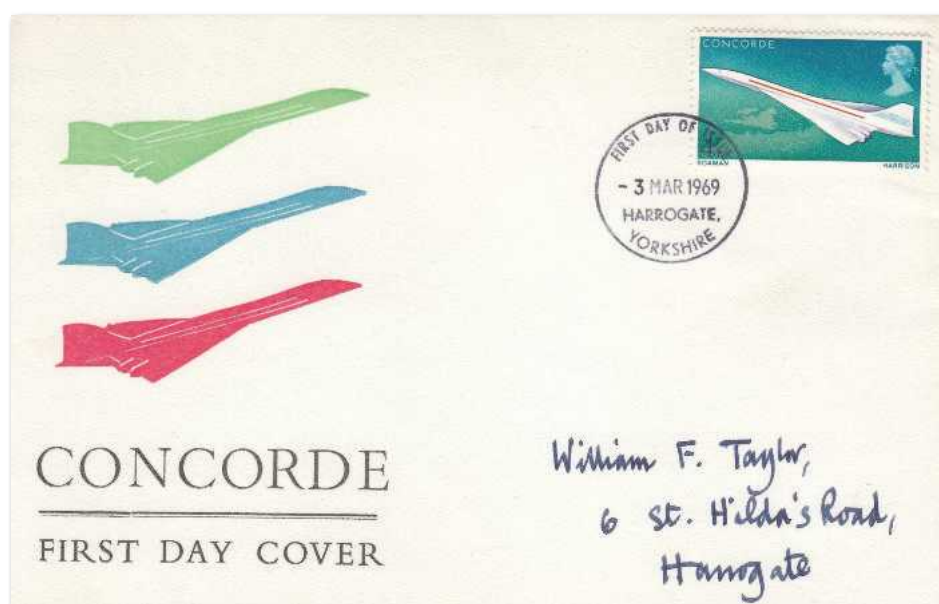 CONCORDE
FIRST DAY OF ISSUE
HARRISON
- 3 MAR 1969
HARROGATE,
YORKSHIRE
CONCORDE
FIRST DAY COVER
William F. Taylor,
6 St. Hilda's Road,
Harrogate